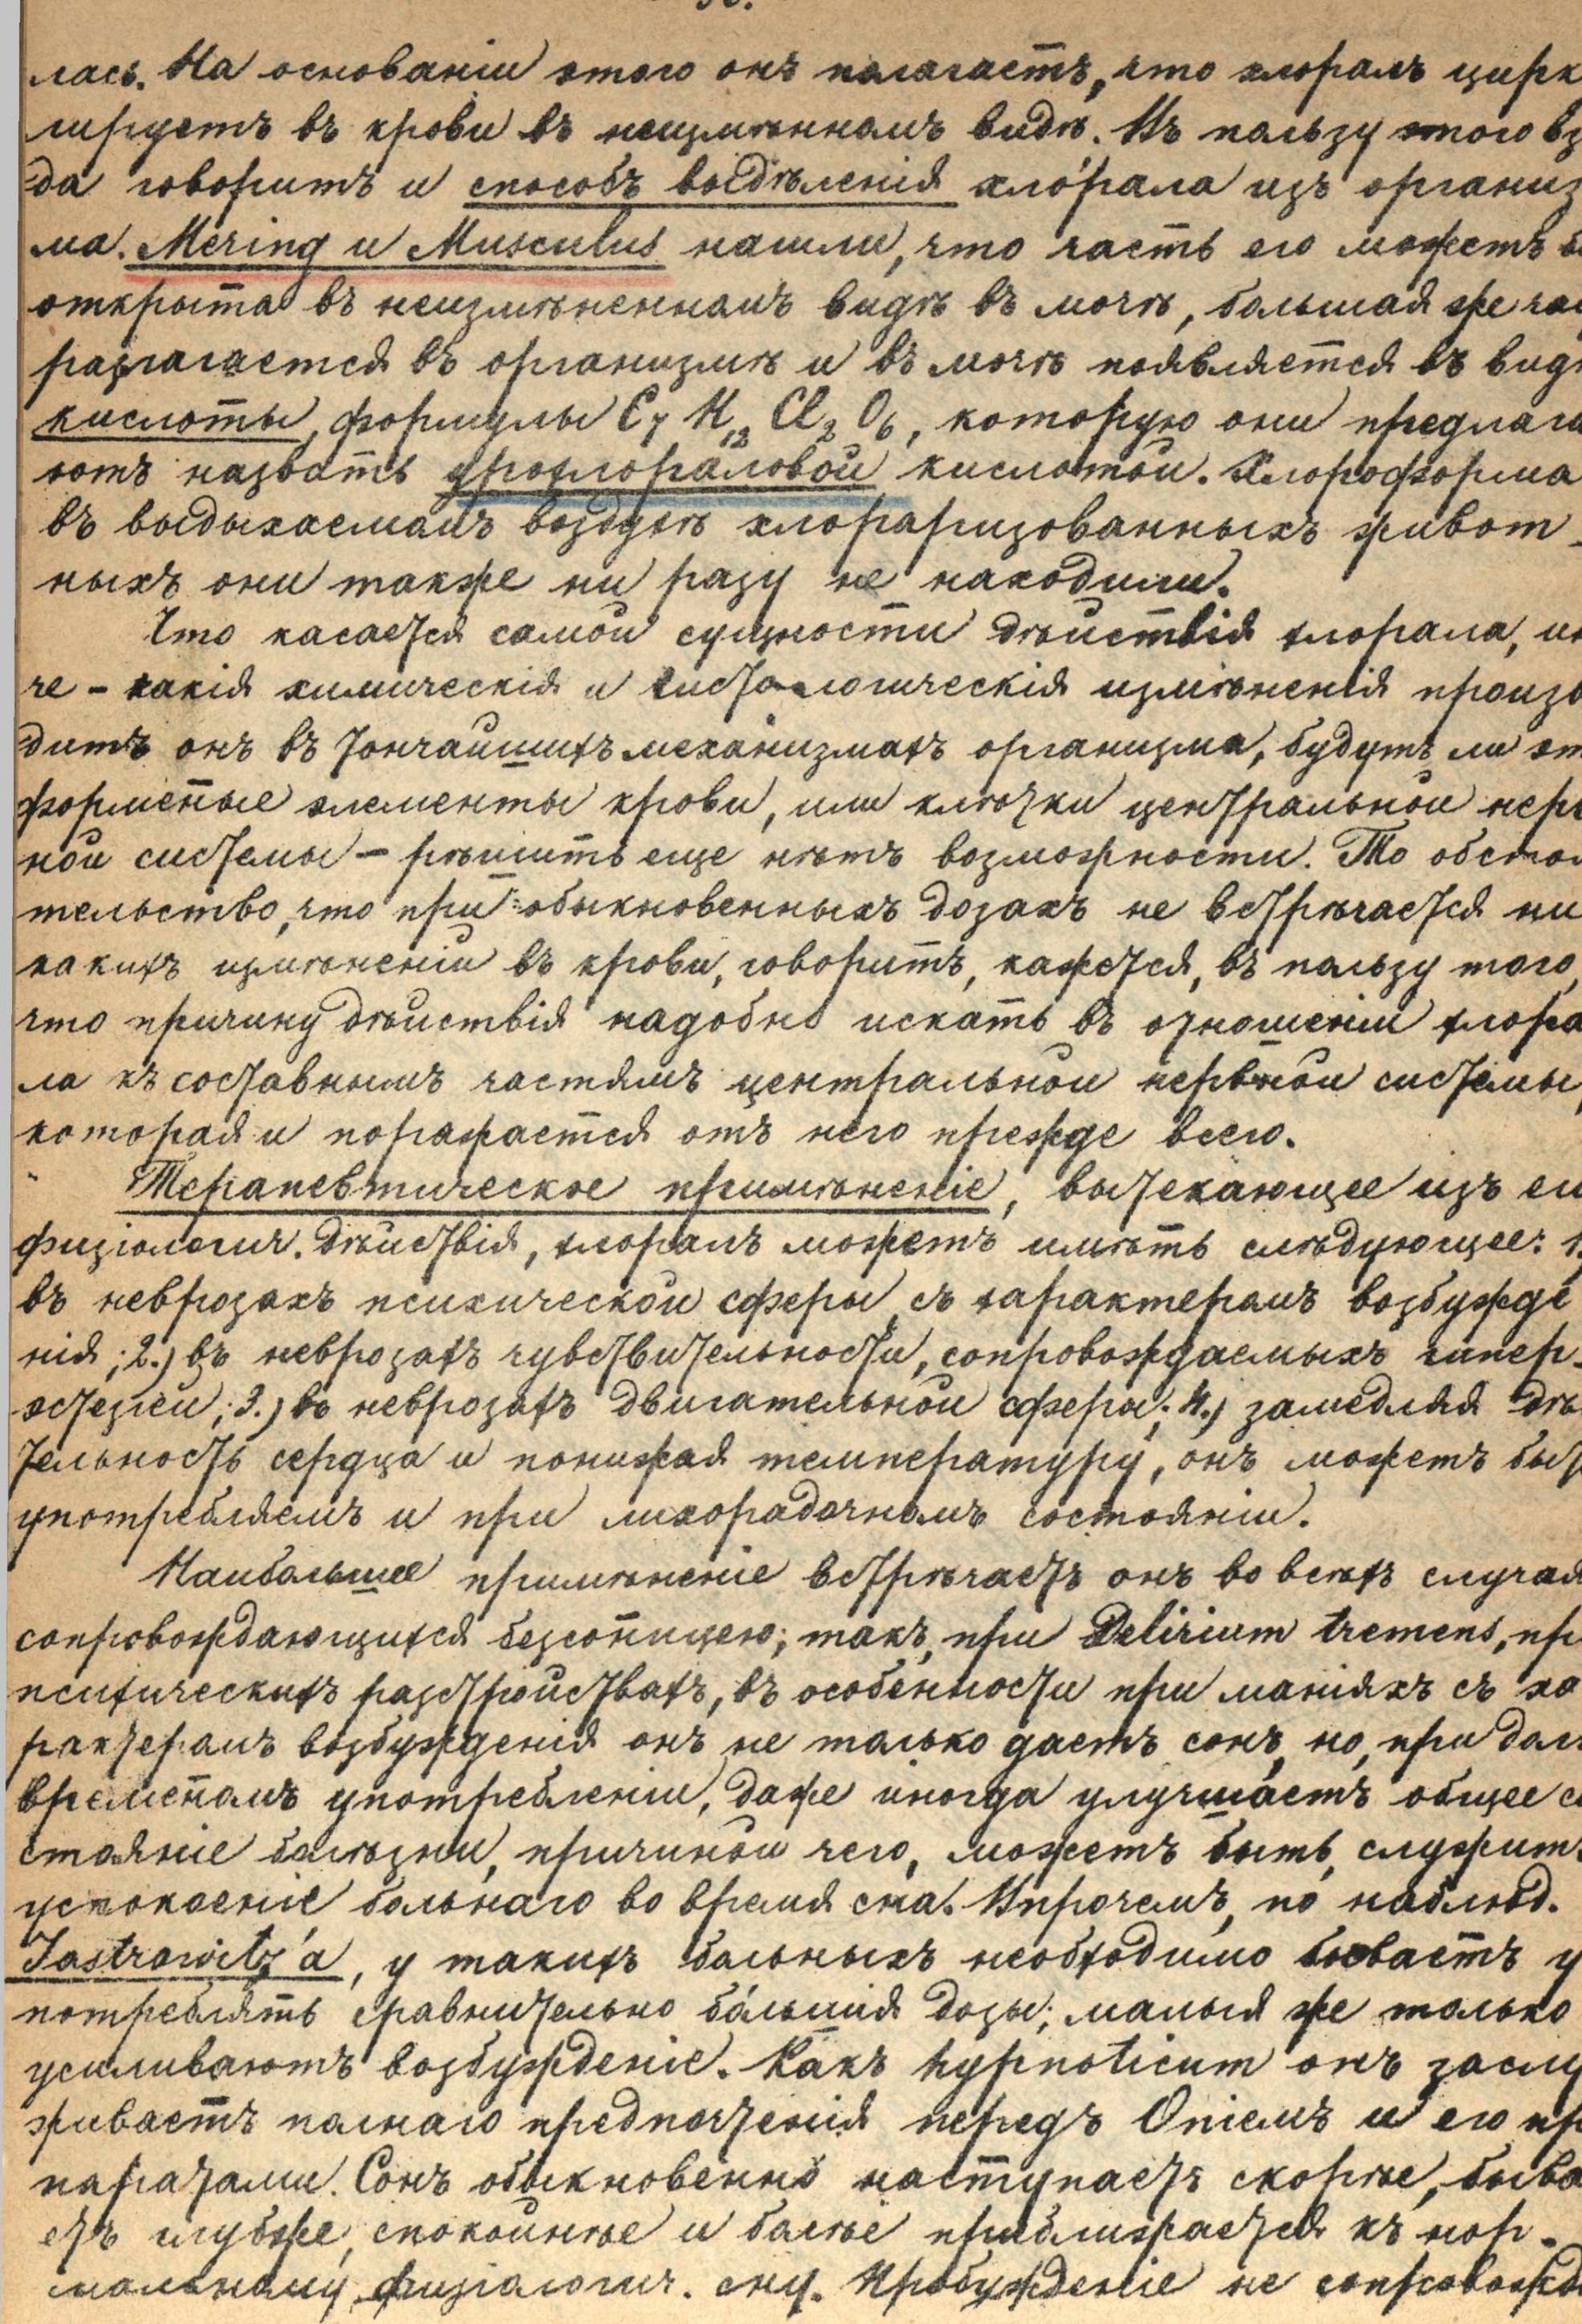 лась. На основаніи этого онъ полагаетъ, что хлоралъ цирк
лируетъ въ крови въ неизмѣнномъ видѣ. Въ пользу этого вз
да говоритъ и способъ выдѣленія хлорала изъ организ
ма. Mering и Musculus нашли, что часть его можетъ б
открыта въ неизмѣненномъ видѣ въ мочѣ, большая же час
разлагается въ организмѣ и въ мочѣ появляется въ видѣ
кислоты, формулы C7 H12 Cl2 O6, которую они предлага
ютъ назвать урохлораловой кислотой. Хлороформа
въ выдыхаемомъ воздухѣ хлорализованныхъ живот-
ныхъ они также ни разу не находили.
Что касается самой сущности дѣйствія хлорала, ин
че - какія химическія и гистологическія измѣненія произв
дитъ онъ въ тончайшихъ механизмахъ организма, будутъ ли эт
форменые элементы крови, или клѣтки центральной нерв
ной системы - рѣшить еще нѣтъ возможности. То обстоя
тельство, что при обыкновенныхъ дозахъ не встрѣчается ни
какихъ измѣненій въ крови, говоритъ, кажется, въ пользу того,
что причину дѣйствія надобно искать въ отношеніи хлора
ла къ составнымъ частямъ центральной нервной системы,
которая и поражается отъ него прежде всего.
Терапевтическое примѣненіе, вытекающее изъ ег
физіологич. дѣйствія, хлоралъ можетъ имѣть слѣдующее: 1.
въ неврозахъ психической сферы съ характеромъ возбужде
нія; 2.) въ неврозахъ чувствительности, сопровождаемыхъ гипер-
эстезіей; 3.) въ неврозахъ двигательной сферы; 4.) замедляя дѣя
тельность сердца и понижая температуру, онъ можетъ быт
употребляемъ и при лихорадочномъ состояніи.
Наибольшее примѣненіе встрѣчаетъ онъ во всѣхъ случая
сопровождающихся безсоницею; такъ, при Delirium tremens, пр
психическихъ разстройствахъ, въ особенности при маніяхъ съ ха
рактеромъ возбужденія онъ не только даетъ сонъ, но, при долг
временомъ употребленіи, даже иногда улучшаетъ общее с
стояніе болѣзни, причиной чего, можетъ быть, служитъ
успокоеніе больнаго во время сна. Впрочемъ, по наблюд.
Jastrowitz'а, у такихъ больныхъ необходимо бываетъ у
потреблять сравнительно бо́льшія дозы; малыя же только
усиливаютъ возбужденіе. Какъ hypnoticum онъ заслу
живаетъ полнаго предпочтенія передъ Опіемъ и его пр
паратами. Сонъ обыкновенно наступаетъ скорѣе, быва
етъ глубже, спокойнѣе и болѣе приближается къ нор-
мальному физіологич. сну. Пробужденіе не сопровожд